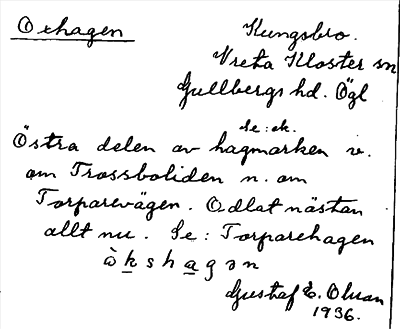 Oxhagen
Kungsbro.
Vreta Kloster sn
Gullbergs hd. Ögl
Se: ek.
Östra delen av hagmarken v.
om Trossboliden n. om
Torparevägen. Odlat nästan
allt nu. Se: Torparehagen
òkshagən
Gustaf E. Olsson
1936.